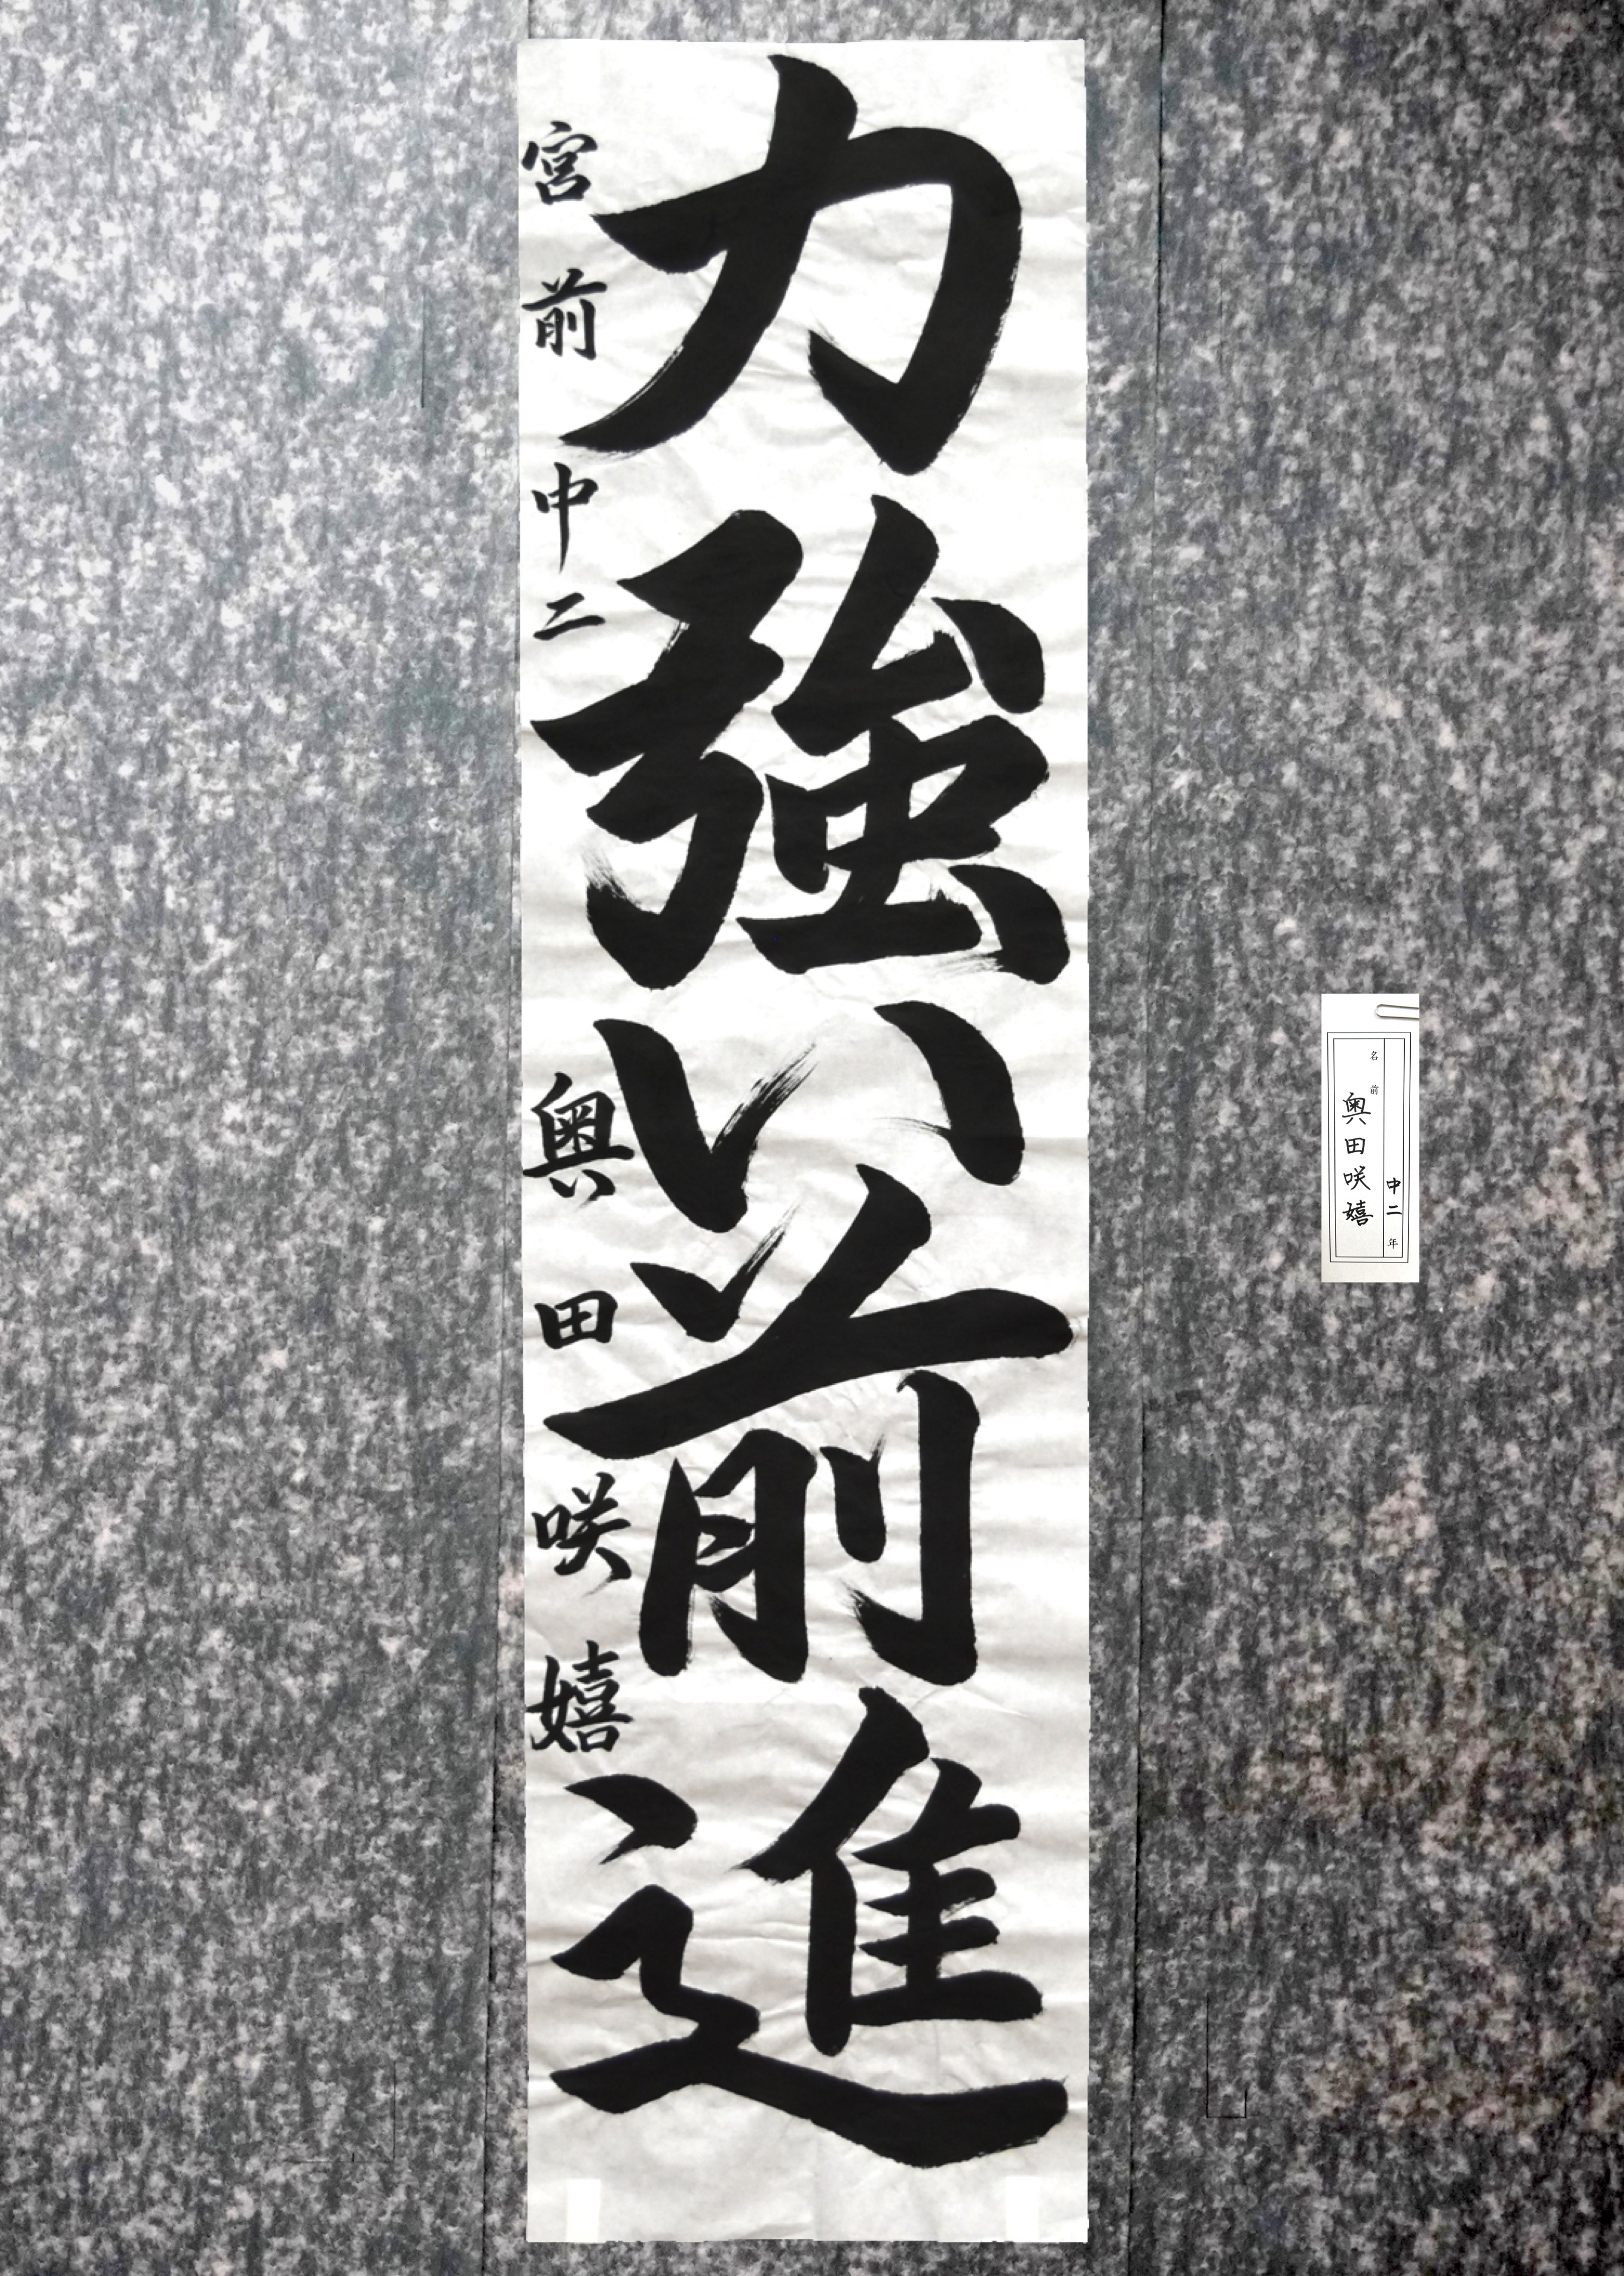 力強い前進
宮前中二 奥田咲嬉
中二年
名前 奥田咲嬉